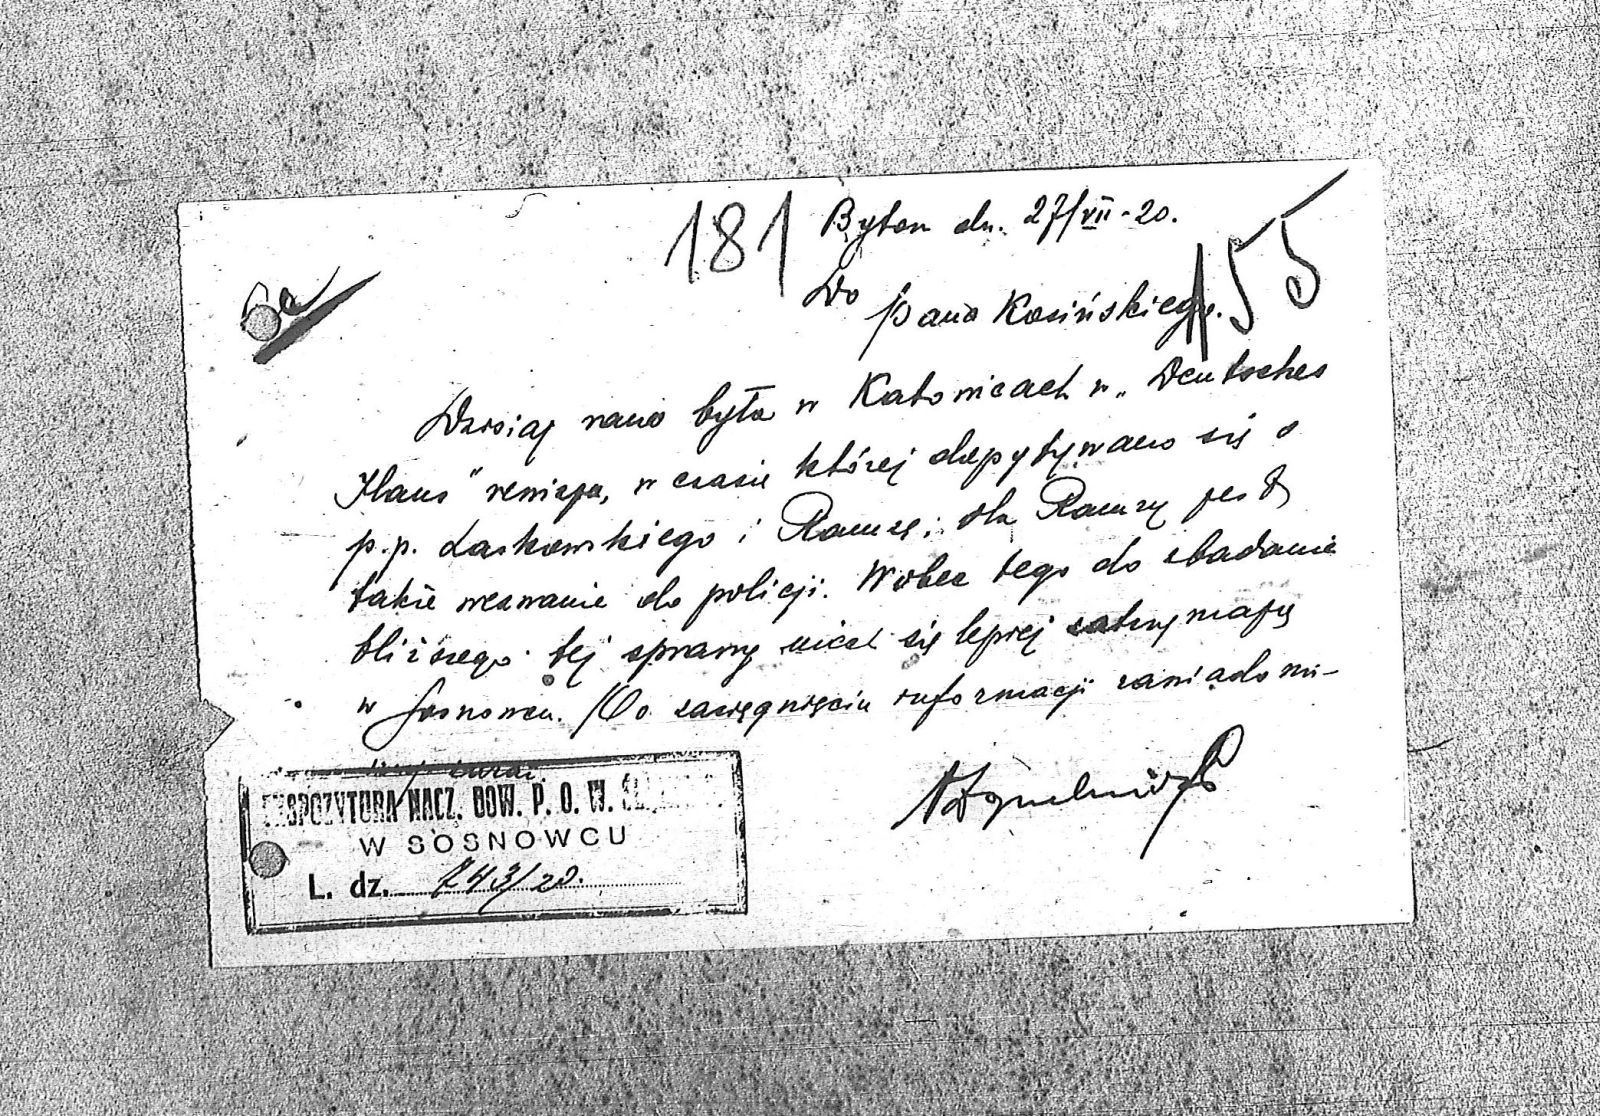 181 Bytom dn. 27/VII-20.
155
Do
Pana Kosińskiego.
Dzisiaj rano była w Katowicach w „Deutsches
Haus" rewizja, w czasie której dopytywano się o
p.p. Laskowskiego i Ramzę; dla Ramzy jest
także wezwanie do policji. Wobec tego do zbadania
bliższego tej sprawy niech się lepiej zatrzymają
w Sosnowcu. Po zasięgnięciu informacji zawiadomi-
zaraz.
EKSPOZYTURA NACZ. DOW. P. O. W.
W SOSNOWCU
L. dz. 743/20.